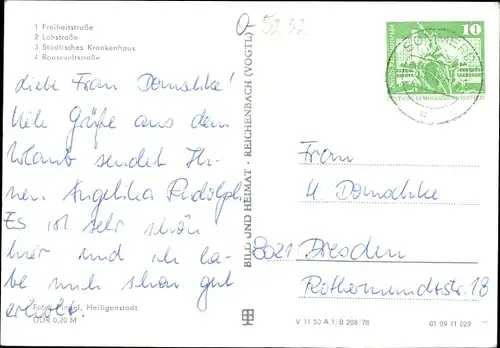 1 Freiheitstraße
2 Lohstraße
3 Städtisches Krankenhaus
4 Rooseveltstraße
0-5252
10
Liebe Frau Domaschke!
Viele Grüße aus dem
Urlaub sendet Ih-
nen Angelika Rudolph.
Es ist sehr schön
hier und ich ha-
be mich schon gut
erholt.
Foto: Pingel, Heiligenstadt
DDR 0,20 M
BILD UND HEIMAT · REICHENBACH (VOGTL)
Frau
H Domaschke
8021 Dresden
Rothermundtstr. 18
V 11 50 A 1/B 208/78
01 09 11 029